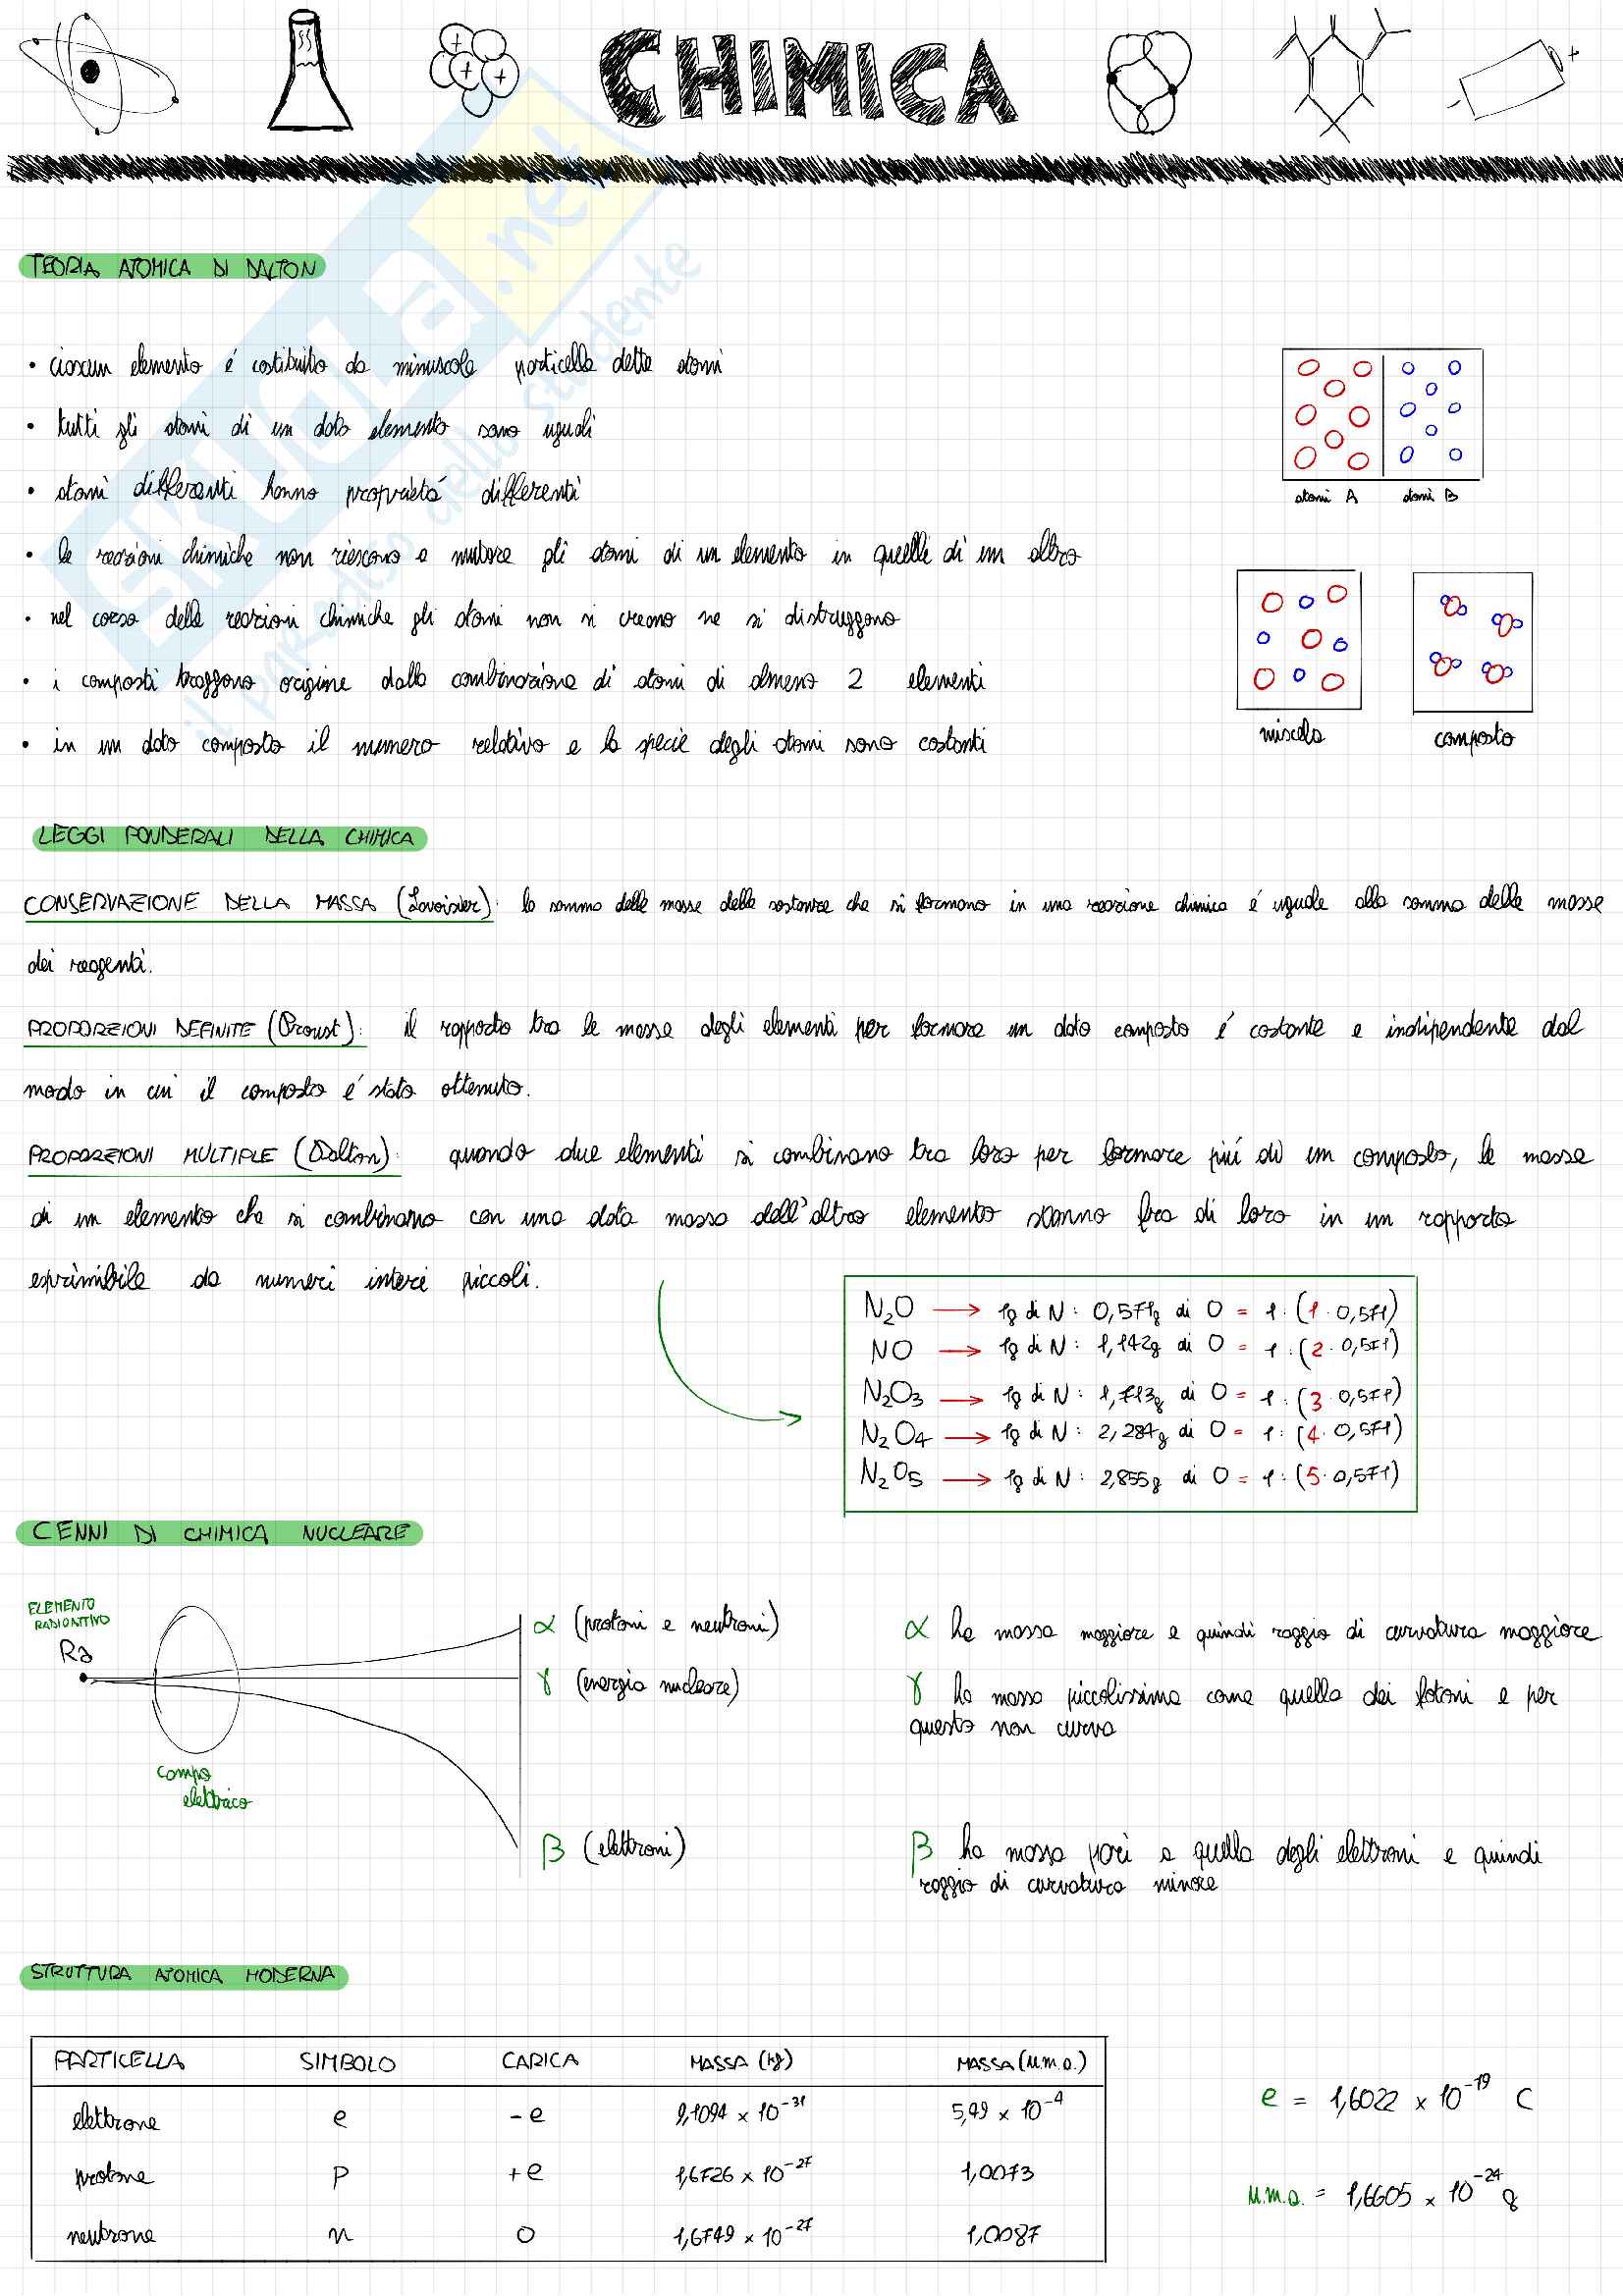 CHIMICA
TEORIA ATOMICA DI DALTON
• ciascun elemento é costituito da minuscole particelle dette atomi
• tutti gli atomi di un dato elemento sono uguali
• atomi differenti hanno proprietá differenti
• le reazioni chimiche non riescono a mutare gli atomi di un elemento in quelli di un altro
• nel corso delle reazioni chimiche gli atomi non si creano ne si distruggono
• i composti traggono origine dalla combinazione di atomi di almeno 2 elementi
• in un dato composto il numero relativo e la specie degli atomi sono costanti
atomi A atomi B
miscela composto
skuola.net
il paradiso dello studente
LEGGI PONDERALI DELLA CHIMICA
CONSERVAZIONE DELLA MASSA (Lavoisier): la somma delle masse delle sostanze che si formano in una reazione chimica é uguale alla somma delle masse
dei reagenti.
PROPORZIONI DEFINITE (Proust): il rapporto tra le masse degli elementi per formare un dato composto é costante e indipendente dal
modo in cui il composto é stato ottenuto.
PROPORZIONI MULTIPLE (Dalton): quando due elementi si combinano tra loro per formare piú di un composto, le masse
di un elemento che si combinano con una data massa dell'altro elemento stanno fra di loro in un rapporto
esprimibile da numeri interi piccoli.
N₂O → 1g di N : 0,571g di O = 1 : (1 · 0,571)
NO → 1g di N : 1,142g di O = 1 : (2 · 0,571)
N₂O₃ → 1g di N : 1,713g di O = 1 : (3 · 0,571)
N₂O₄ → 1g di N : 2,284g di O = 1 : (4 · 0,571)
N₂O₅ → 1g di N : 2,855g di O = 1 : (5 · 0,571)
CENNI DI CHIMICA NUCLEARE
ELEMENTO
RADIOATTIVO
Ra
campo
elettrico
α (protoni e neutroni)
γ (energia nucleare)
β (elettroni)
α ha massa maggiore e quindi raggio di curvatura maggiore
γ ha massa piccolissima come quella dei fotoni e per
questo non curva
β ha massa pari a quella degli elettroni e quindi
raggio di curvatura minore
STRUTTURA ATOMICA MODERNA
PARTICELLA SIMBOLO CARICA MASSA (kg) MASSA (u.m.a.)
elettrone e -e 9,1094 × 10⁻³¹ 5,49 × 10⁻⁴
protone p +e 1,6726 × 10⁻²⁷ 1,0073
neutrone n 0 1,6749 × 10⁻²⁷ 1,0087
e = 1,6022 × 10⁻¹⁹ C
u.m.a. = 1,6605 × 10⁻²⁴ g